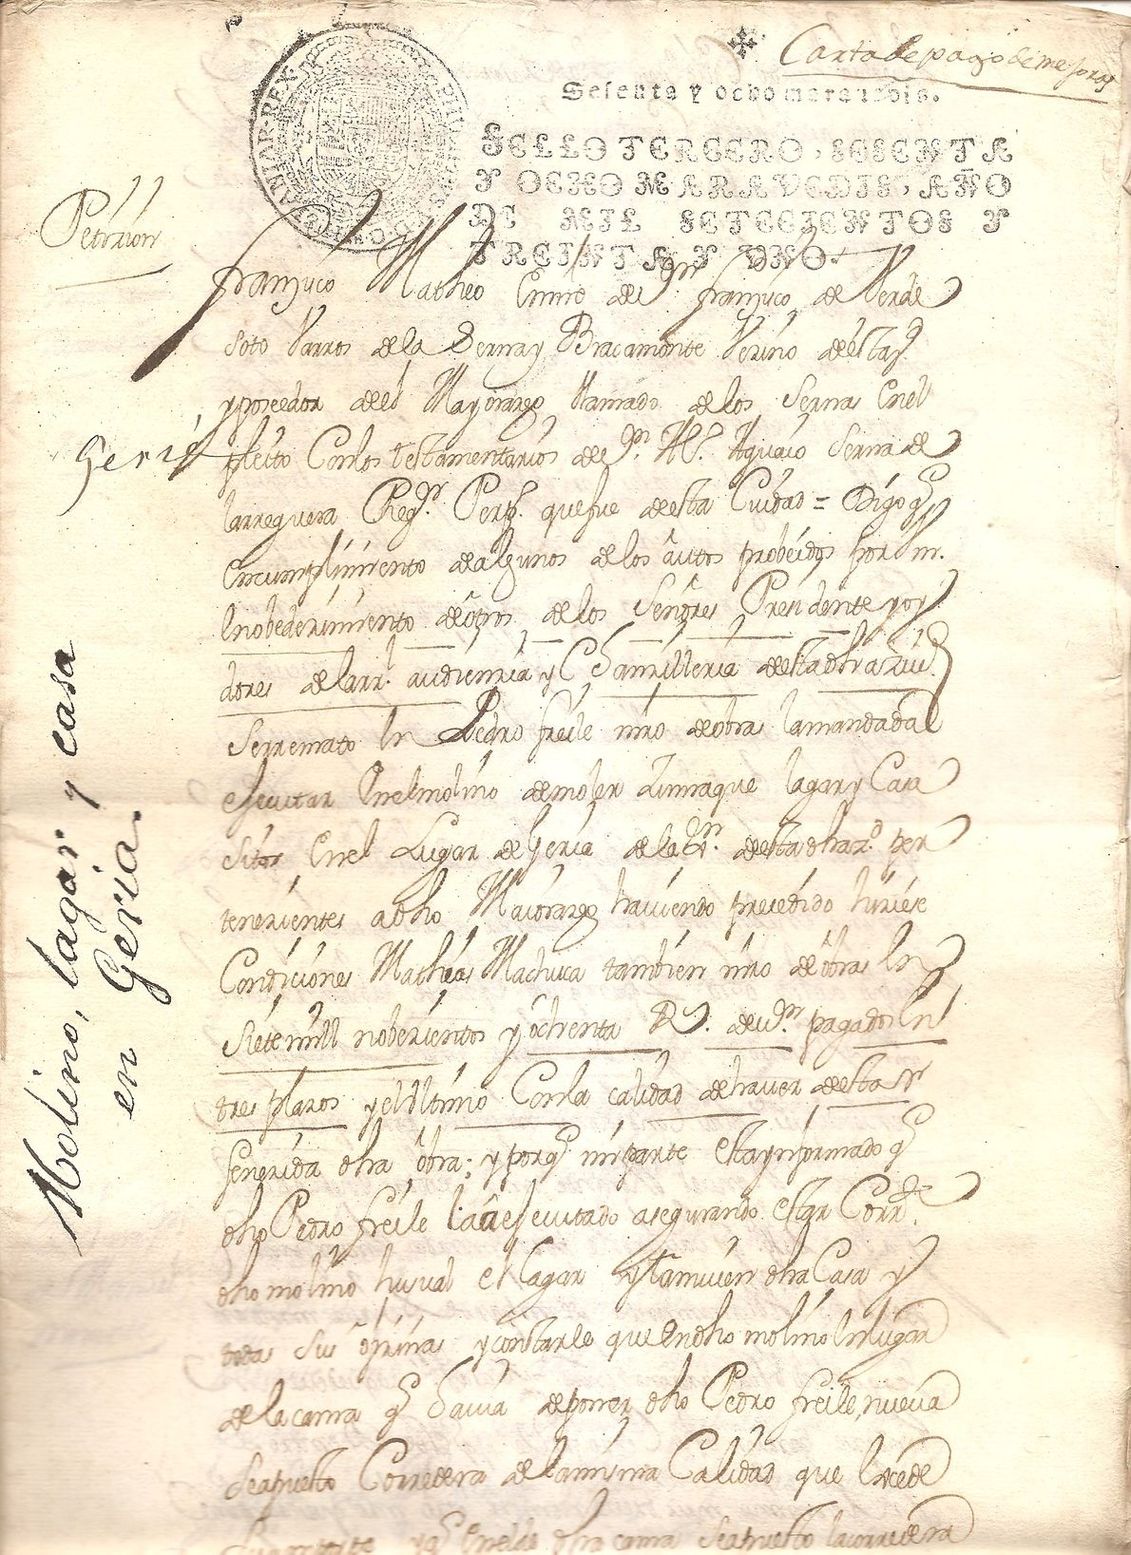 Carta de pago de mejoras
Sesenta y ocho maravedis.
SELLO TERCERO, SESENTA
Y OCHO MARAVEDIS, AÑO
DE MIL SETECIENTOS Y
TREINTA Y UNO.
Petizion
Franzisco Matheo en nre de Dn franzisco de Verde
soto Varros de la Serna y Bracamonte Vezino desta
y poseedor del Mayorazgo llamado de los Sernas Enel
Geria
pleito Conlos testamentarios de Dn Aguaio Serna de
larreguera Regr. Perp. que fue desta Ciudad = Digo q
Encumplimiento de algunos de los autos probeidos por
Enobedezimiento de otros de los Señores Presidente y oy
dores de la rl. audienzia y Chanzilleria desta dha Ziud
Serremato En Pedro freile mro de obras la mandada
ejecutar Enel molino de moler Zumaque lagar y Casa
sitos Enel Lugar de Geria de la desta dha per
tenezientes a dho Maiorazgo haviendo prezedido hiziese
Condiziones Mathias Machuca tambien mro de obras En
siete mill nobezientos y ochenta Rs. de vn. pagados En
tres plazos y el ultimo Con la calidad de haver de estar
fenezida dha obra; y porq mi parte esta ynformado q
dho Pedro freile la a ejecutado asegurando estar Corrte
dho molino husual el lagar y tamvien dha Casa y
todas sus ofizinas y constarle que En dho molino En lugar
de la cama q havia de poner dho Pedro freile, nueva
Sea puesto Corredera de la misma Calidad que Exzede
dha cama Sea puesto la corredera
Molino, lagar y casa
en Geria